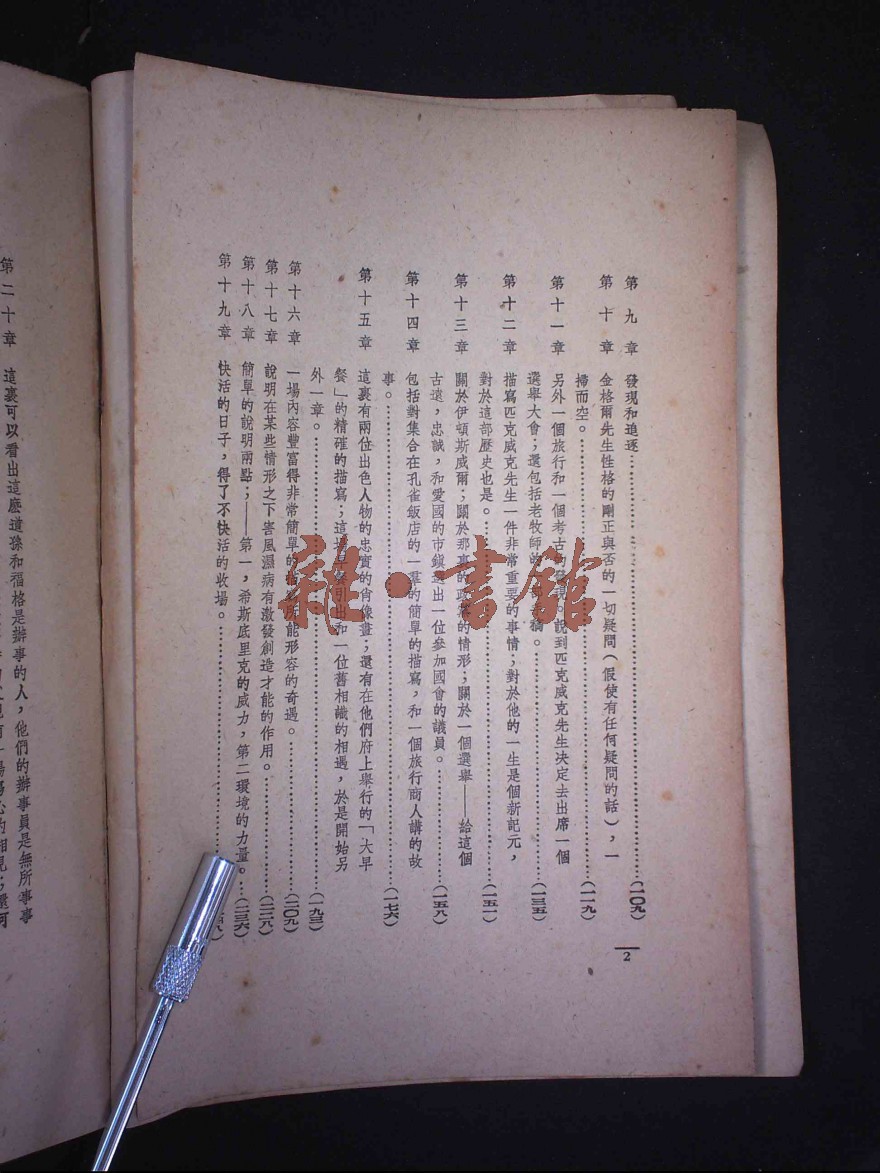 第九章 發現和追逐……(一〇九)
第十章 金格爾先生性格的剛正與否的一切疑問(假使有任何疑問的話),一
掃而空。……(一一九)
第十一章 另外一個旅行和一個考古的發現。說到匹克威克先生決定去出席一個
選舉大會;還包括老牧師的一部文稿。……(一三五)
第十二章 描寫匹克威克先生一件非常重要的事情;對於他的一生是個新記元,
對於這部歷史也是。……(一五一)
第十三章 關於伊頓斯威爾;關於那裏的政黨的情形;關於一個選舉——給這個
古遠,忠誠,和愛國的市鎮選出一位參加國會的議員。……(一五八)
第十四章 包括對集合在孔雀飯店的一羣的簡單的描寫,和一個旅行商人講的故
事。……(一七六)
第十五章 這裏有兩位出色人物的忠實的肖像畫;還有在他們府上舉行的「大早
餐」的精確的描寫;這場早餐引出和一位舊相識的相遇,於是開始另
外一章。……(一九三)
第十六章 一場內容豐富得非常簡單的描寫所能形容的奇遇。……(二〇九)
第十七章 說明在某些情形之下害風濕病有激發創造才能的作用。……(二二八)
第十八章 簡單的說明兩點;——第一,希斯底里克的威力,第二環境的力量。…(二三六)
第十九章 快活的日子,得了不快活的收場。……四九)
2
第二十章 這裏可以看出這麽道孫和福格是辦事的人,他們的辦事員是無所事事
雜·書館